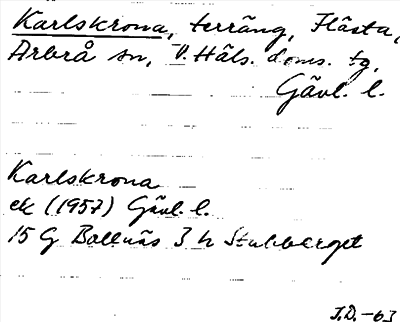 Karlskrona, terräng, Flästa,
Arbrå sn, V. Häls. doms. tg,
Gävl. l.
Karlskrona
ek (1957) Gävl. l.
15 G Bollnäs 3 h Stabberget
J.D. -63